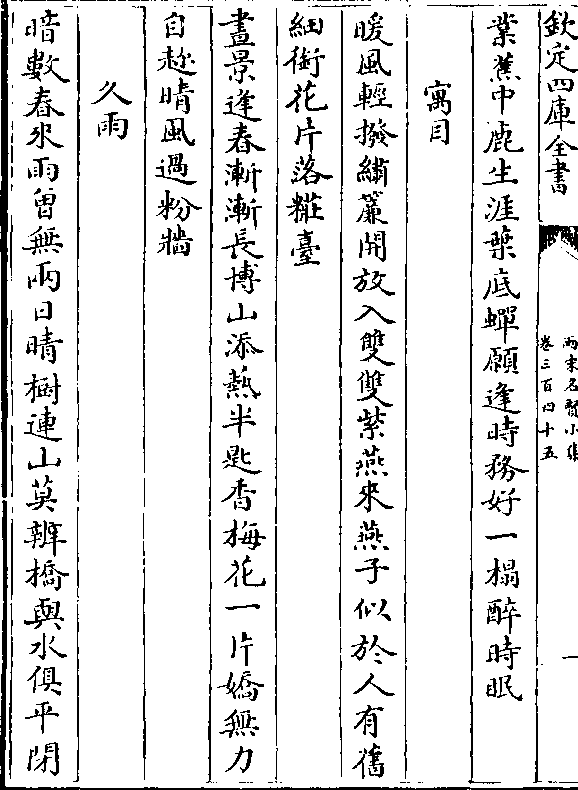 欽定四庫全書
兩宋名賢小集
卷三百四十五
一
業蕉中鹿生涯葉底蟬願逢時務好一榻醉時眠
寓目
暖風輕撥繡簾開放入雙雙紫燕來燕子似於人有舊
細銜花片落糚臺
晝景逢春漸漸長博山添熱半匙香梅花一片嬌無力
自趂晴風過粉牆
久雨
暗數春來雨曾無兩日晴樹連山莫辨橋與水俱平閉